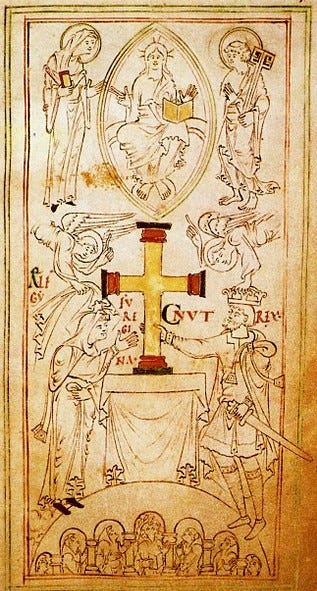 ÆLF
GY
FU R
EGI
NA·
CNVT REX